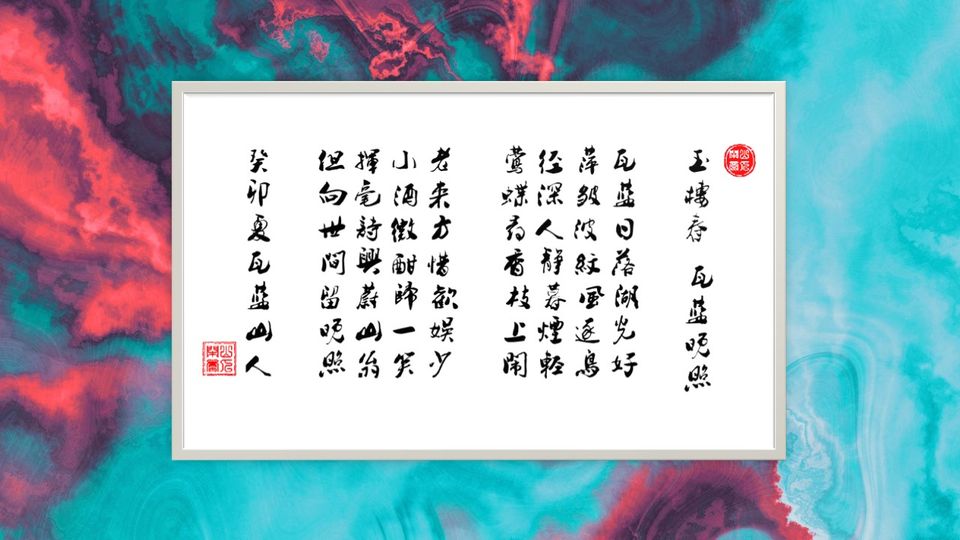 玉樓春 瓦蓝晚照
瓦蓝日落湖光好
萍皱波紋風逐鳥
径深人靜暮煙輕
鶯蝶尋香枝上鬧
老来方惜歡娱少
小酒微酣歸一笑
揮毫詩興蔚山翁
但向世间留晚照
癸卯夏瓦蓝山人